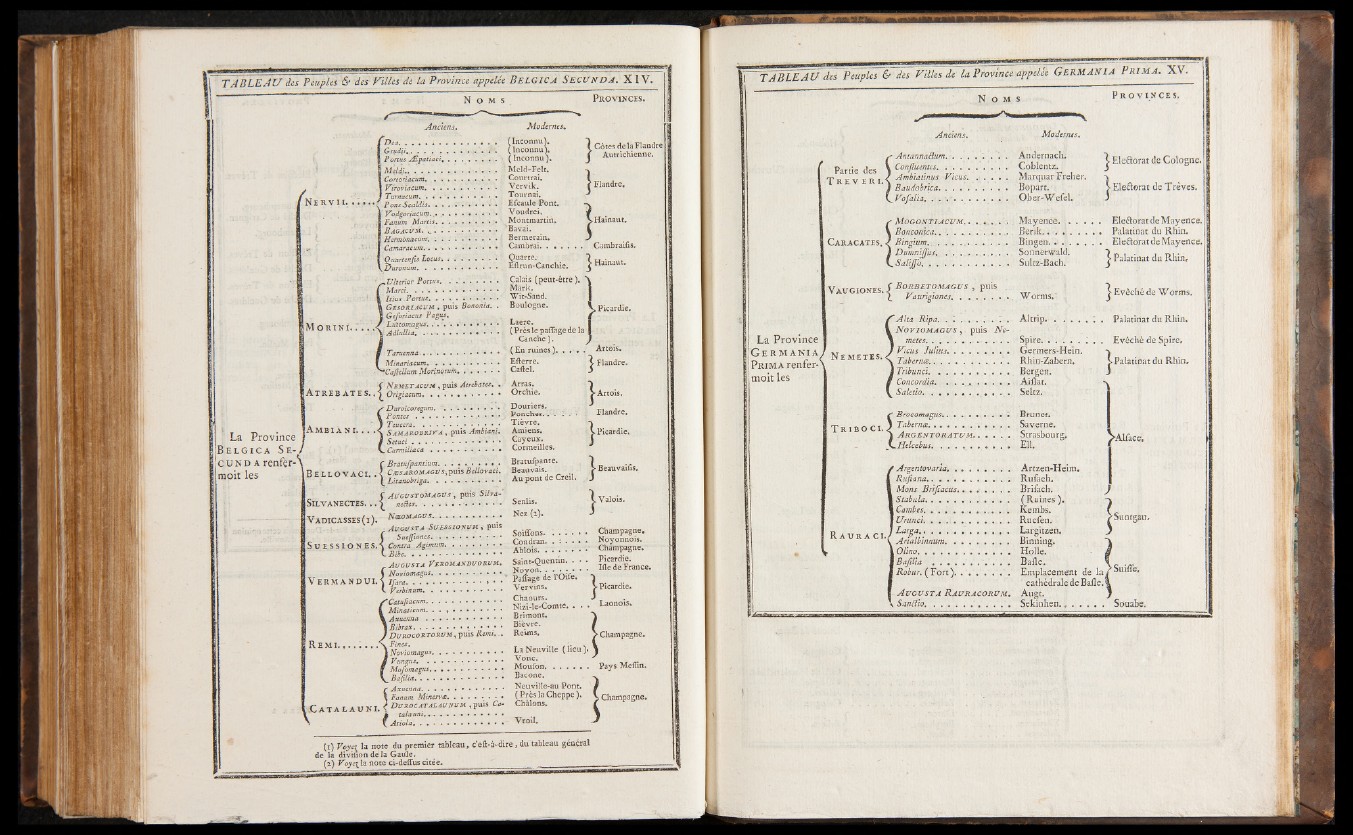 TABLEAU des Peuples & des Villes de la Province appelée BELGICA SECUNDA. XIV.
NOMS PROVINCES.
Anciens. Modernes.
La Province BELGICA SECUNDA renfermoit les
NERVII.
Dia. (Inconnu).
Grudii. (Inconnu). Côtes de la Flandre Autrichienne.
Portus Æpatiaci. (Inconnu).
Meldi. Meld-Felt.
Cortoriacum. Courtrai.
Viroviacum. Vervik. Flandre.
Turnacum. Tournai.
Pons Scaldis. Escaule-Pont.
Vodgoriacum. Voudrei.
Fanum Martis. Montmartin. Hainaut.
BAGACUM. Bavai.
Hermonacum. Bermerain.
Camaracum. Cambrai. Cambraisis.
Quartensis Locus. Quarte. Hainaut.
Duronum. Estrun-Canchie.
MORINI.
Ulterior Portus. Calais (peut-être).
Marci. Mark.
Itius Portus. Wit-Sand.
GESORIACUM, puis Bononia. Boulogne. Picardie.
Gesoriacus Pagus.
Luttomagus. Laere.
Adlullia. (Près le passage de la Canche).
Taruenna. (En ruines). Artois.
Minariacum. Esterre. Flandre.
Castellum Morinorum. Castel.
ATREBATES.
NEMETACUM, puis Atrebates. Arras. Artois.
Origiacum. Orchie.
AMBIANI.
Duroicoregum. Douriers.
Pontes. Ponches. Flandre.
Teucera. Tièvre.
SAMAROBRIVA, puis Ambiani. Amiens. Picardie.
Setuci. Cayeux.
Curmiliaca. Cormeilles.
BELLOVACI.
Bratuspantium. Bratuspante.
CÆSAROMAGUS, puis Bellovaci. Beauvais. Beauvaisis.
Litanobriga. Au pont de Creil.
SILVANECTES.
AUGUSTOMAGUS, puis Silvanectes. Senlis. Valois.
VADICASSES (1).
NŒOMAGUS. Nez (2).
SUESSIONES.
AUGUSTA SUESSIONUM, puis Suessiones. Soissons. Champagne.
Contra Aginnum. Condran. Noyonnois.
Bibe. Ablois. Champagne.
VERMANDUI.
AUGUSTA VEROMANDUORUM. Saint-Quentin. Picardie.
Noviomagus. Noyon. Isle de France.
Isara. Passage de l'Oise. Picardie.
Verbinum. Vervins.
REMI.
Catusiacum. Chaours.
Minaticum. Nizi-le-Comte. Laonois.
Axuenna. Brimont.
Bibrax. Bièvre.
DUROCORTORUM, puis Remi. Reims. Champagne.
Fines.
Noviomagus. La Neuville (lieu).
Vongus. Vonc.
Mosomagus. Mouson. Pays Messin.
Basilia. Bacone.
CATALAUNI.
Axuenna. Neuville-au-Pont.
Fanum Minervæ. (Près la Cheppe). Champagne.
DUROCATALAUNUM, puis Catalauni. Châlons.
Ariola. Vroil.
(1) Voyez la note du premier tableau, c'est-à-dire, du tableau général
de la division de la Gaule.
(2) Voyez la note ci-dessus citée.
TABLEAU des Peuples & des Villes de la Province appelée GERMANIA PRIMA. XV.
NOMS PROVINCES.
Anciens. Modernes.
La Province GERMANIA PRIMA renfermoit les
Partie des TREVERI.
Antunnacum. Andernach. Electorat de Cologne.
Confluentes. Coblentz.
Ambiatinus Vicus. Marquar Freher.
Baudobrica. Bopart. Electorat de Trèves.
Vosalia. Ober-Wesel.
CARACATES.
MOGONTIACUM. Mayence. Electorat de Mayence.
Bonconica. Berik. Palatinat du Rhin.
Bingium. Bingen. Electorat de Mayence.
Dumnissus. Sonnerwald. Palatinat du Rhin.
Salisso. Sultz-Bach.
VANGIONES.
BORBETOMAGUS, puis Vaurigiones. Worms. Evêché de Worms.
NEMETES.
Alta Ripa. Altrip. Palatinat du Rhin.
NOVIOMAGUS, puis Nemetes. Spire. Evêché de Spire.
Vicus Julius. Germers-Hein.
Tabernæ. Rhin-Zabern. Palatinat du Rhin.
Tribunci. Bergen.
Concordia. Aislat.
Saletio. Seltz.
TRIBOCI.
Brocomagus. Brumt.
Tabernæ. Saverne.
ARGENTORATUM. Strasbourg. Alsace.
Helcebus. Ell.
RAURACI.
Argentovaria. Artzen-Heim.
Rufiana. Rufach.
Mons Brisiacus. Brisach.
Stabula. (Ruines).
Cambes. Kembs.
Urunci. Rucsen. Suntgau.
Larga. Largitzen.
Arialbinnum. Binning.
Olino. Holle.
Basilia. Basle.
Robur. (Fort). Emplacement de la cathédrale de Basle. Suisse.
AUGUSTA RAURACORUM. Augt.
Sanctio. Sekinhen. Souabe.